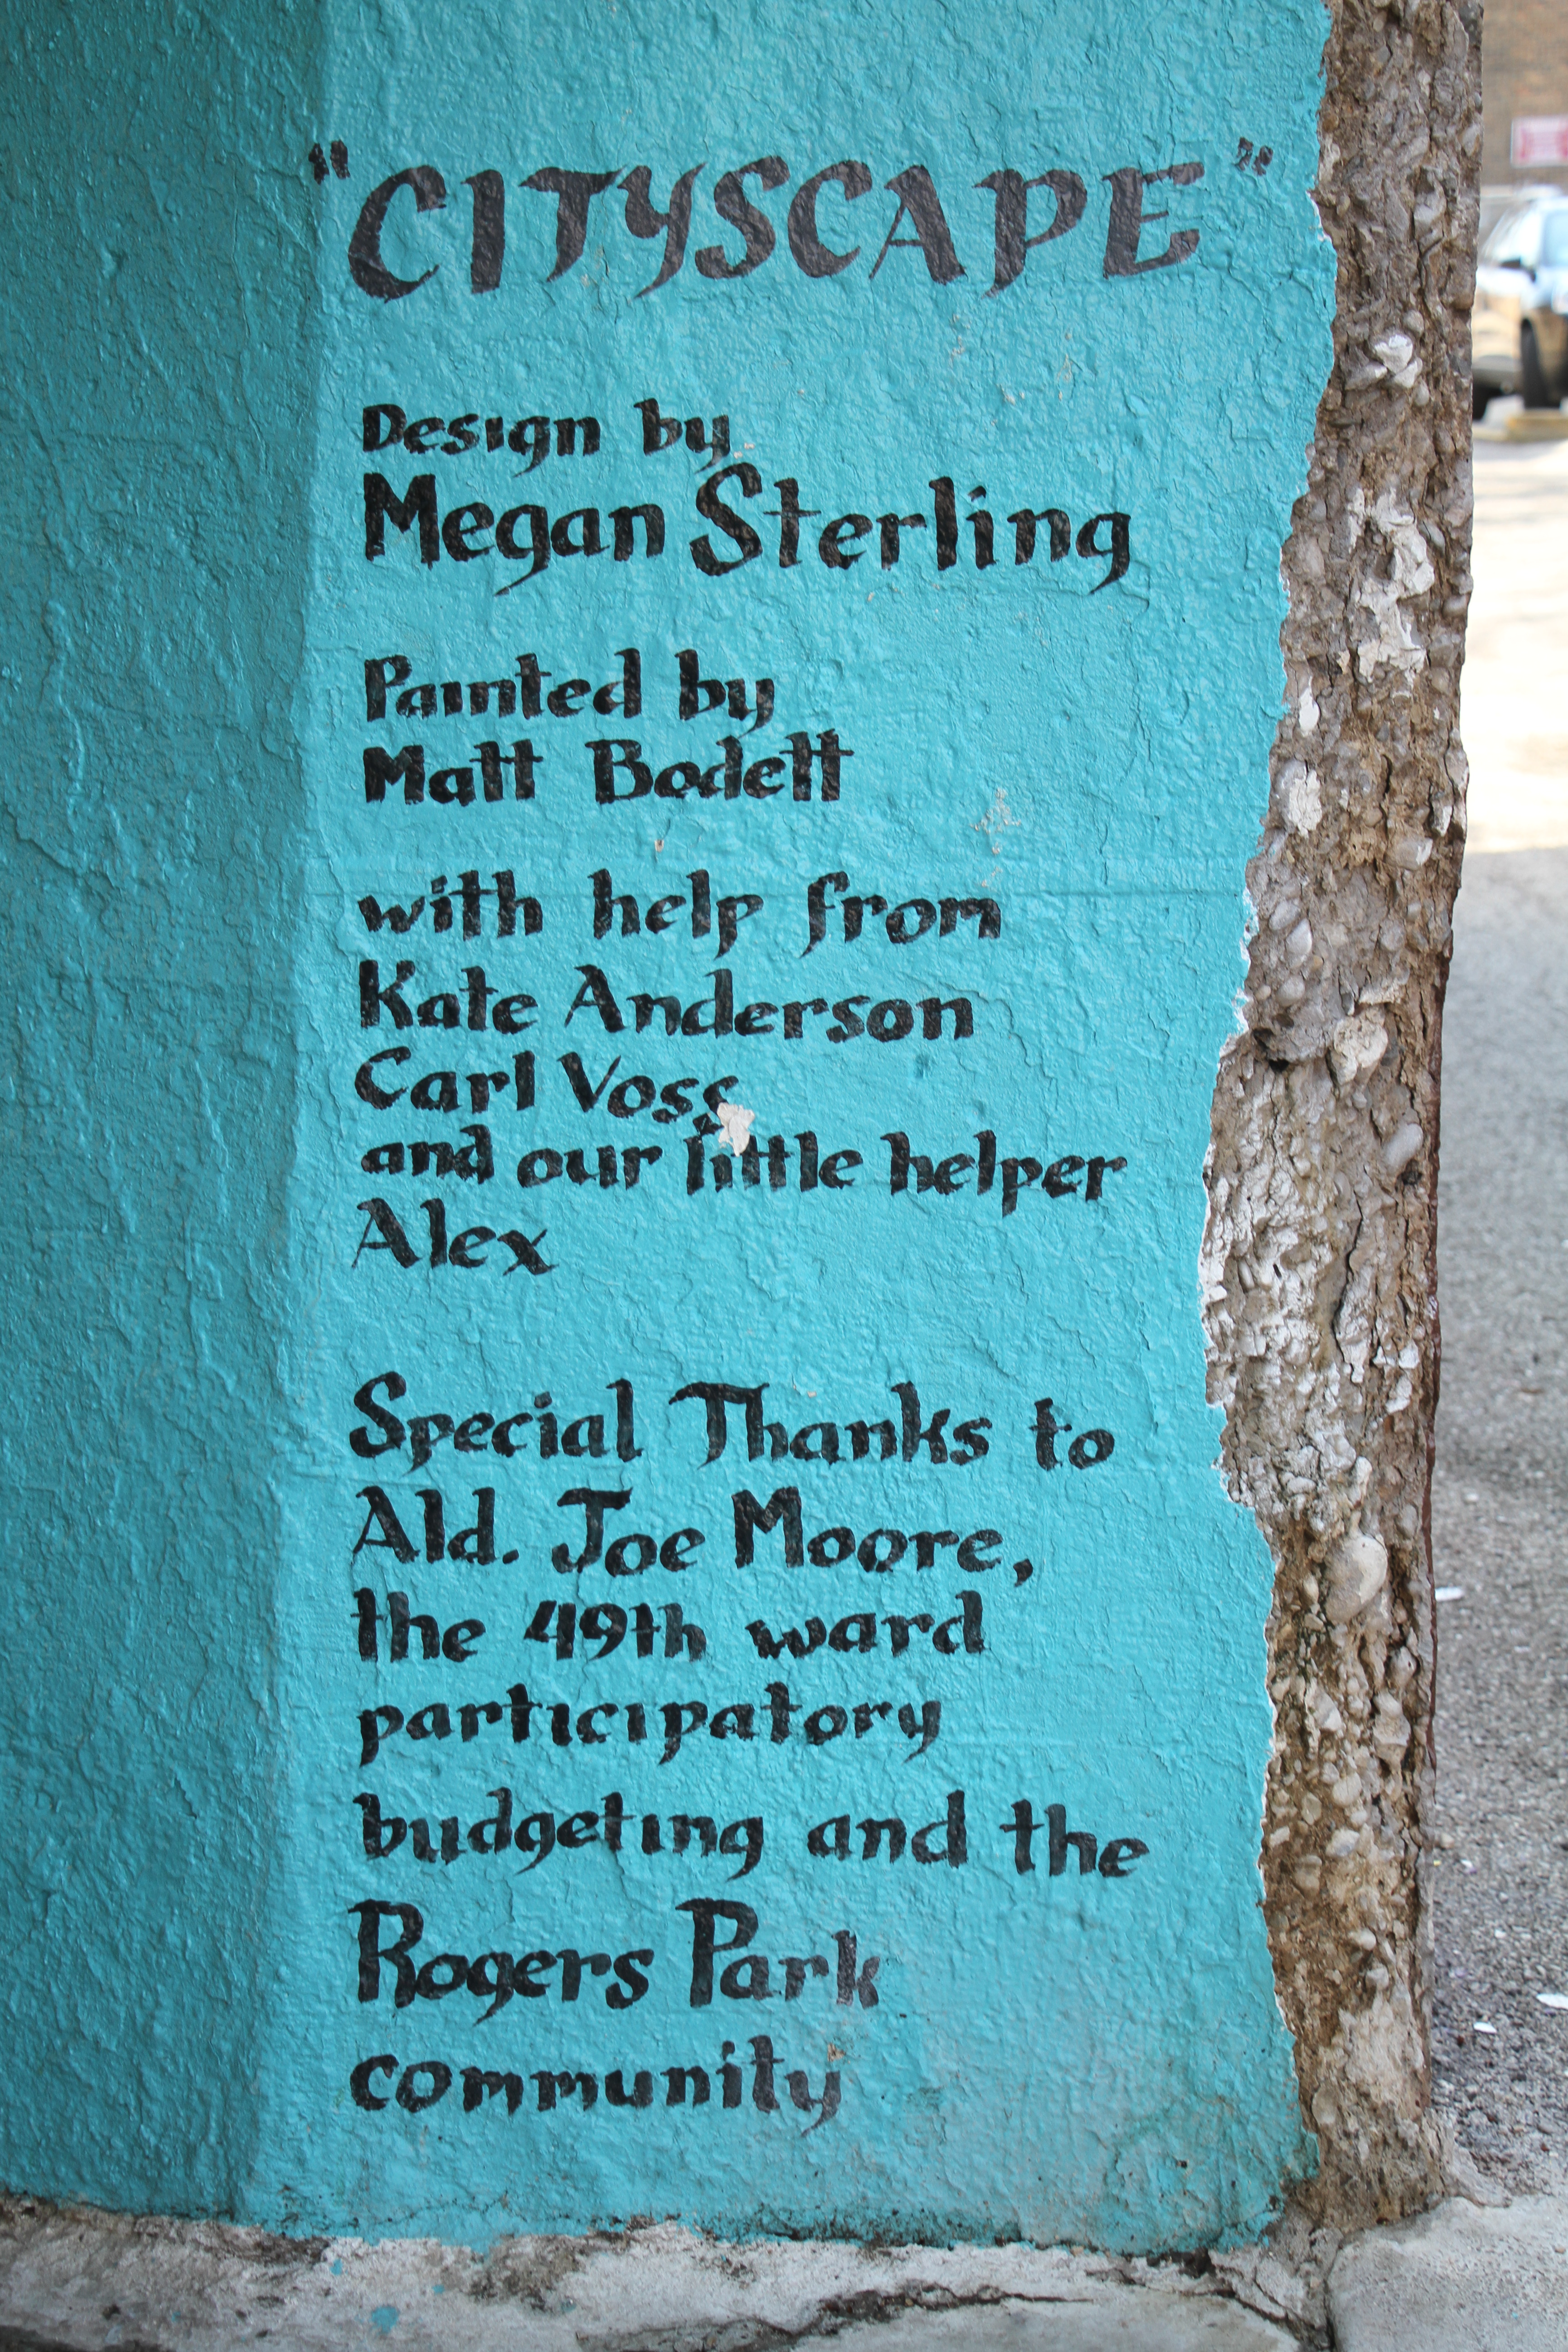 "CITYSCAPE"
Design by
Megan Sterling
Painted by
Matt Bodett
with help from
Kate Anderson
Carl Voss
and our little helper
Alex
Special Thanks to
Ald. Joe Moore,
the 49th ward
participatory
budgeting and the
Rogers Park
community